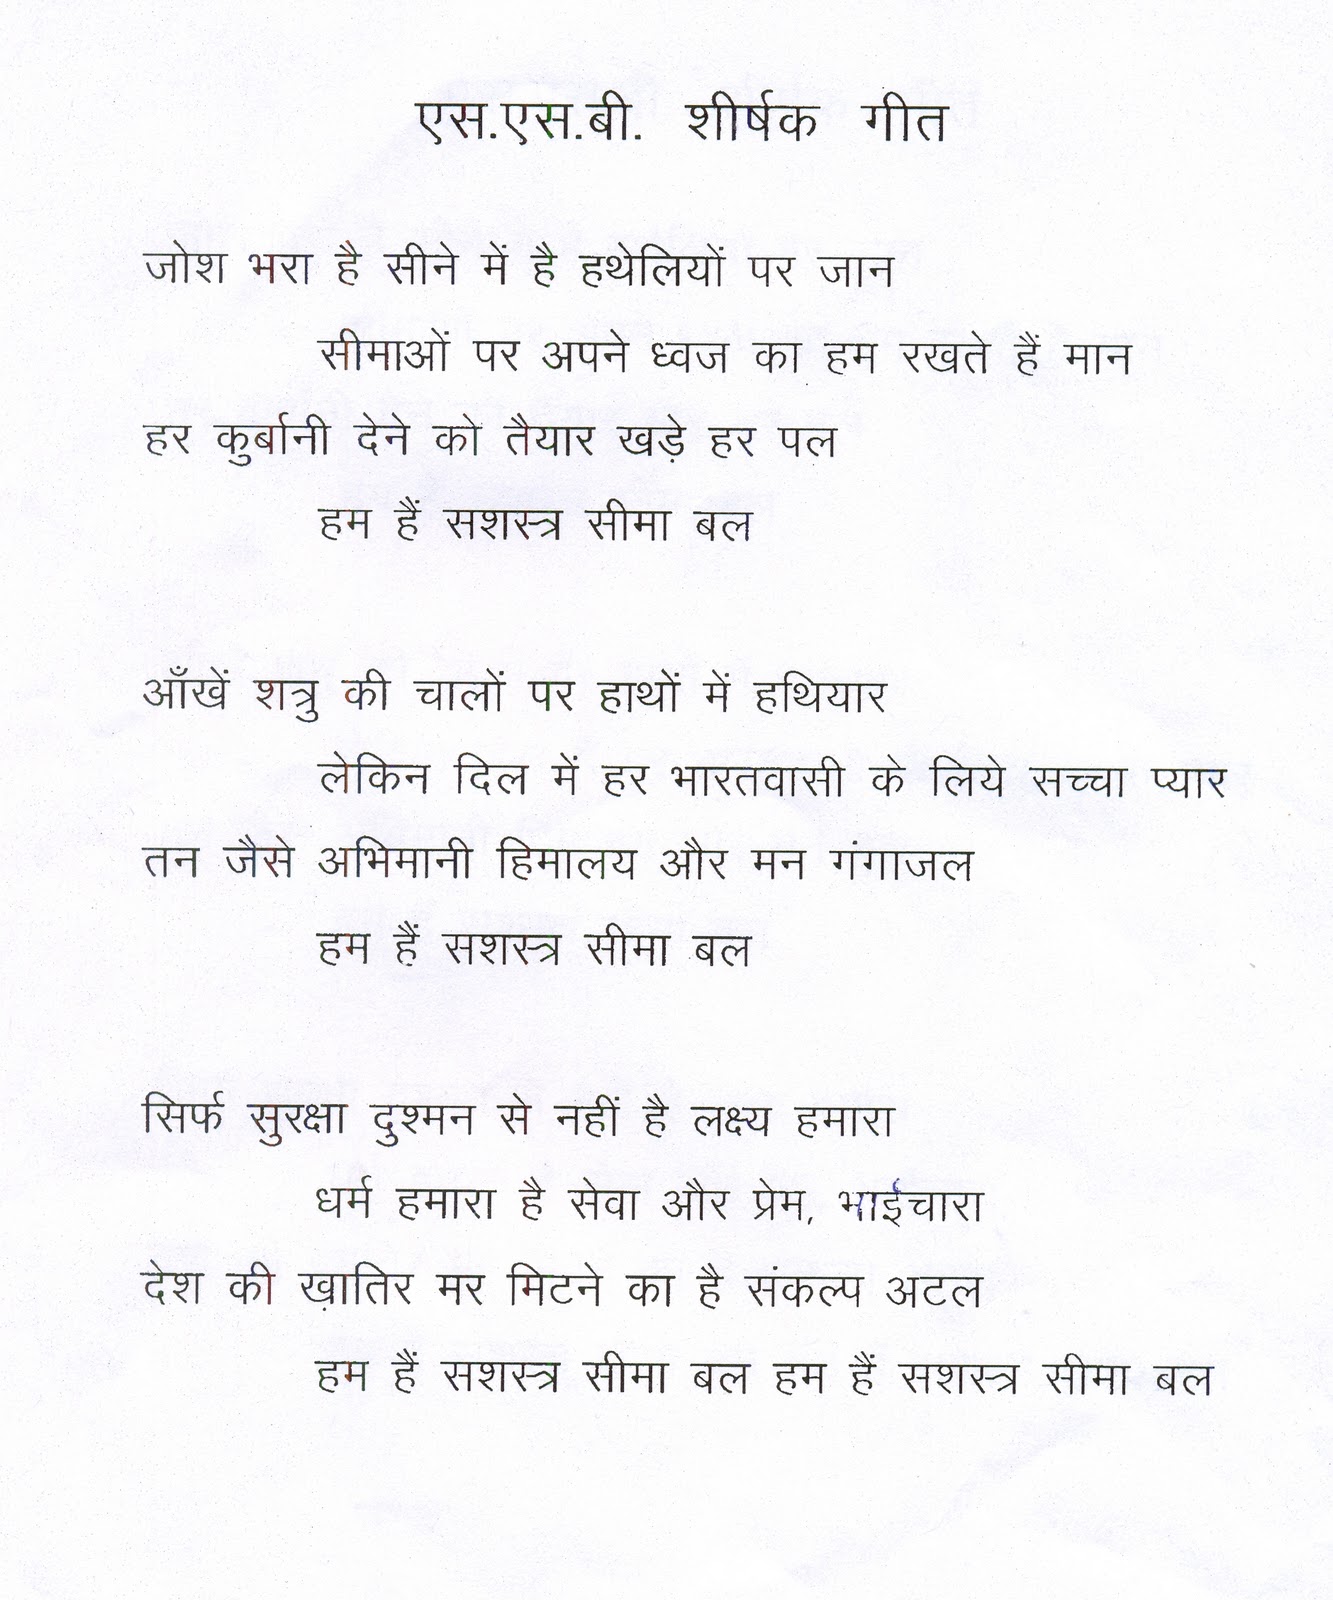 एस.एस.बी. शीर्षक गीत
जोश भरा है सीने में है हथेलियों पर जान
सीमाओं पर अपने ध्वज का हम रखते हैं मान
हर कुर्बानी देने को तैयार खड़े हर पल
हम हैं सशस्त्र सीमा बल
आँखें शत्रु की चालों पर हाथों में हथियार
लेकिन दिल में हर भारतवासी के लिये सच्चा प्यार
तन जैसे अभिमानी हिमालय और मन गंगाजल
हम हैं सशस्त्र सीमा बल
सिर्फ सुरक्षा दुश्मन से नहीं है लक्ष्य हमारा
धर्म हमारा है सेवा और प्रेम, भाईचारा
देश की ख़ातिर मर मिटने का है संकल्प अटल
हम हैं सशस्त्र सीमा बल हम हैं सशस्त्र सीमा बल